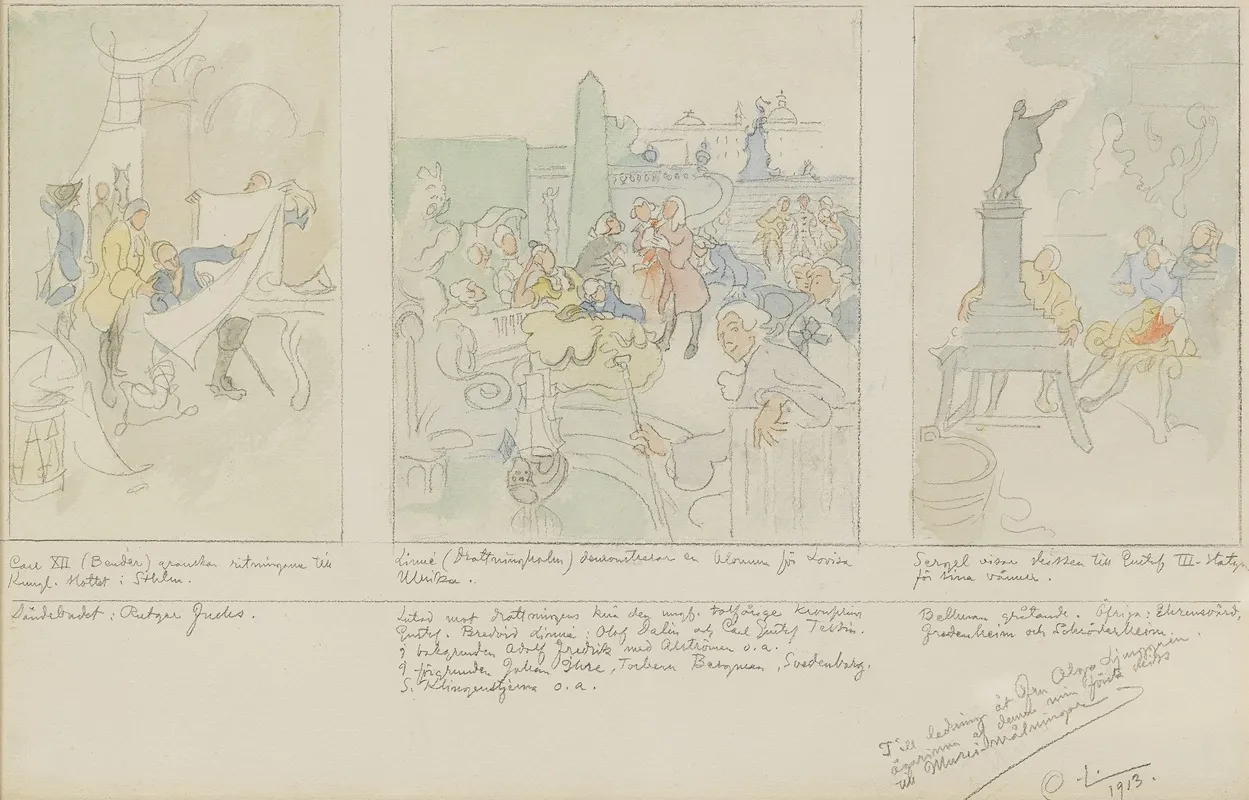 Carl XII (Bender) granskar ritningarna till
Kungl. slottet i Sthlm.
Sändebudet: Rutger Fuchs.
Linné (Drottningholm) demonstrerar en blomma för Lovisa
Ulrika.
Lutad mot drottningens knä den ungf. tolfårige kronprins
Gustaf. Bredvid Linné: Olof Dalin och Carl Gustaf Tessin.
I bakgrunden Adolf Fredrik med Alströmer o.a.
I förgrunden Johan Ihre, Torbern Bergman, Svedenborg,
S. Klingenstjerna o.a.
Sergel visar skissen till Gustaf III-Statyn
för sina vänner.
Bellman gråtande. Öfriga: Ehrensvärd,
Fredenheim och Schröderheim.
Till ledning åt Fru Olga Ljunggren
ägarinna af denna min första skiss
till Museimålningar
O L. 1913.